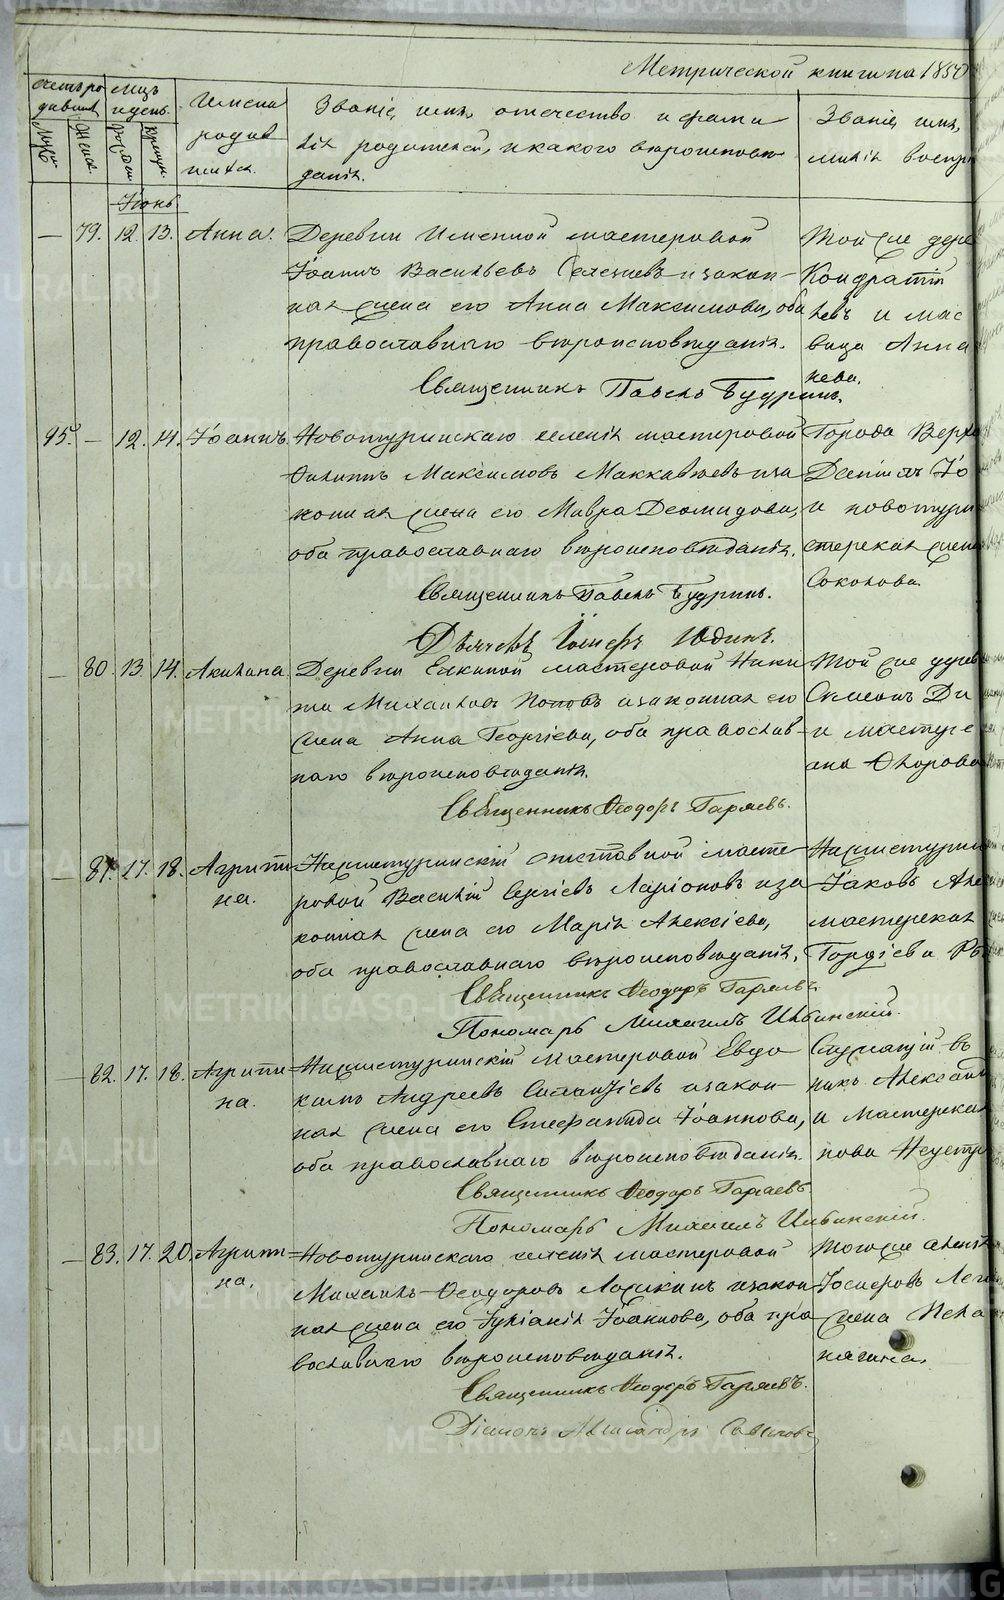 Метрической книги на 1850
счетъ ро
дившихъ
Муж
Жена
мѣсяцъ
и день
рожден
крещен
Имена
родив
шихся.
Званіе, имя, отечество и фами
лія родителей, и какого вѣроисповѣ
данія.
Званіе, имя,
милія воспрі
Іюнь
— 79. 12. 13. Анна. Деревни Именной мастеровой
Іоаннъ Васильевъ и закон-
ная жена его Анна Максимова, оба
православнаго вѣроисповѣданія.
Священникъ Павелъ Будринъ.
Той же дере
Кондратій
левъ и мас
вица Анна
нева.
95. — 12. 14. Іоаннъ. Новотуринскаго селенія мастеровой
Филиппъ Максимовъ Маккавѣевъ и за
конная жена его Мавра Деомидова,
оба православнаго вѣроисповѣданія.
Священникъ Павелъ Будринъ.
Дьячекъ Юдинъ.
Города Верхо
Іо
и новотури
стерская жена
Соколова.
— 80. 13. 14. Акилина Деревни Елкиной мастеровой Ники
та Михаиловъ Поповъ и законная его
жена Анна Георгіева, оба православ-
наго вѣроисповѣданія.
Священникъ Ѳеодоръ Гаряевъ.
Той же дерев
Симеонъ Ди
и мастерс
ана Ѳлорова
— 81. 17. 18. Агрипи
на.
Нижнетуринскій отставной масте-
ровой Василій Сергіевъ Ларіоновъ и за
конная жена его Марія Алексіева,
оба православнаго вѣроисповѣданія.
Священникъ Ѳеодоръ Гаряевъ
Пономарь Михаилъ Ильинскій.
Нижнетурин
Іаковъ Але
мастерская
Гордіева
— 82. 17. 18. Агрипи
на.
Нижнетуринскій мастеровой Евдо
кимъ Андреевъ и закон-
ная жена его Стефанида Іоаннова,
оба православнаго вѣроисповѣданія.
Священникъ Ѳеодоръ Гаряевъ
Пономарь Михаилъ Ильинскій.
Служащій въ
никъ Александ
и мастерская
нова
— 83. 17. 20. Агрипи
на.
Новотуринскаго селенія мастеровой
Михаилъ Ѳеодоровъ Ложкинъ и закон
ная жена его Іуліанія Іоаннова, оба пра
вославнаго вѣроисповѣданія.
Священникъ Ѳеодоръ Гаряевъ.
Діаконъ Александръ
Того же селенія
Іосифовъ
жена Пела
нягина.
METRIKI.GASO-URAL.RU